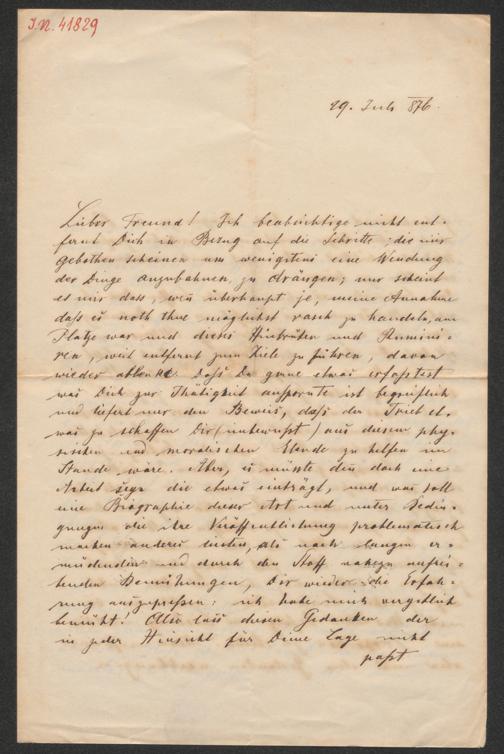 I.N. 41829
29. Juli 876.
Lieber Freund! Ich beabsichtige nicht ent-
fernt Dich in Bezug auf die Schritte, die mir
gebothen scheinen um wenigstens eine Wendung
der Dinge anzubahnen, zu drängen; nur scheint
es mir dass, wenn überhaupt je, meine Annahme
daß es noth thue möglichst rasch zu handeln, am
Platze war und dieses Hinbrüten und Ruminie-
ren, weit entfernt zum Ziele zu führen, davon
wieder ablenkt. Daß Du gerne etwas erfasstest
was Dich zur Thätigkeit anspornte ist begreiflich
und liefert mir den Beweis, daß der Trieb et-
was zu schaffen Dir (unbewußt) aus diesem phy-
sischen und moralischen Elende zu helfen im
Stande wäre. Aber, es müsste dies doch eine
Arbeit sein die etwas einträgt, und was soll
eine Biographie dieser Art und unter Bedin-
gungen die ihre Veröffentlichung problematisch
machen anderes bieten, als nach langen er-
müdenden und durch den Stoff nahezu aufrei-
benden Bemühungen, Dir wieder die Erfah-
rung auszupressen: ich habe mich vergeblich
bemüht! Also lass diesen Gedanken der
in jeder Hinsicht für Deine Lage nicht
paßt